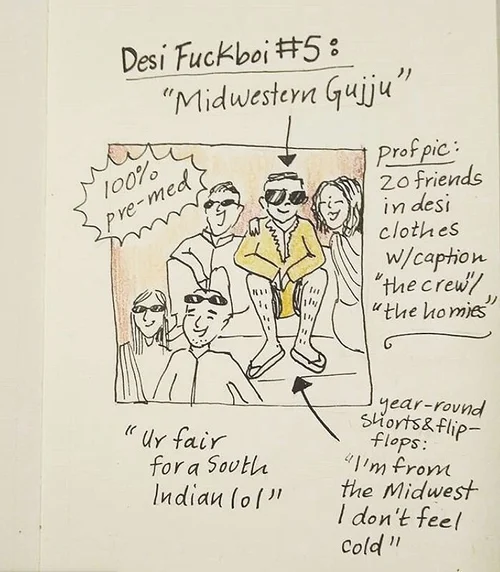 Desi Fuckboi #5:
"Midwestern Gujju"
100%
pre-med
Profpic:
20 friends
in desi
clothes
w/caption
"the crew"/
"the homies"
"Ur fair
for a South
Indian lol"
year-round
shorts&flip-
flops:
"I'm from
the Midwest
I don't feel
cold"